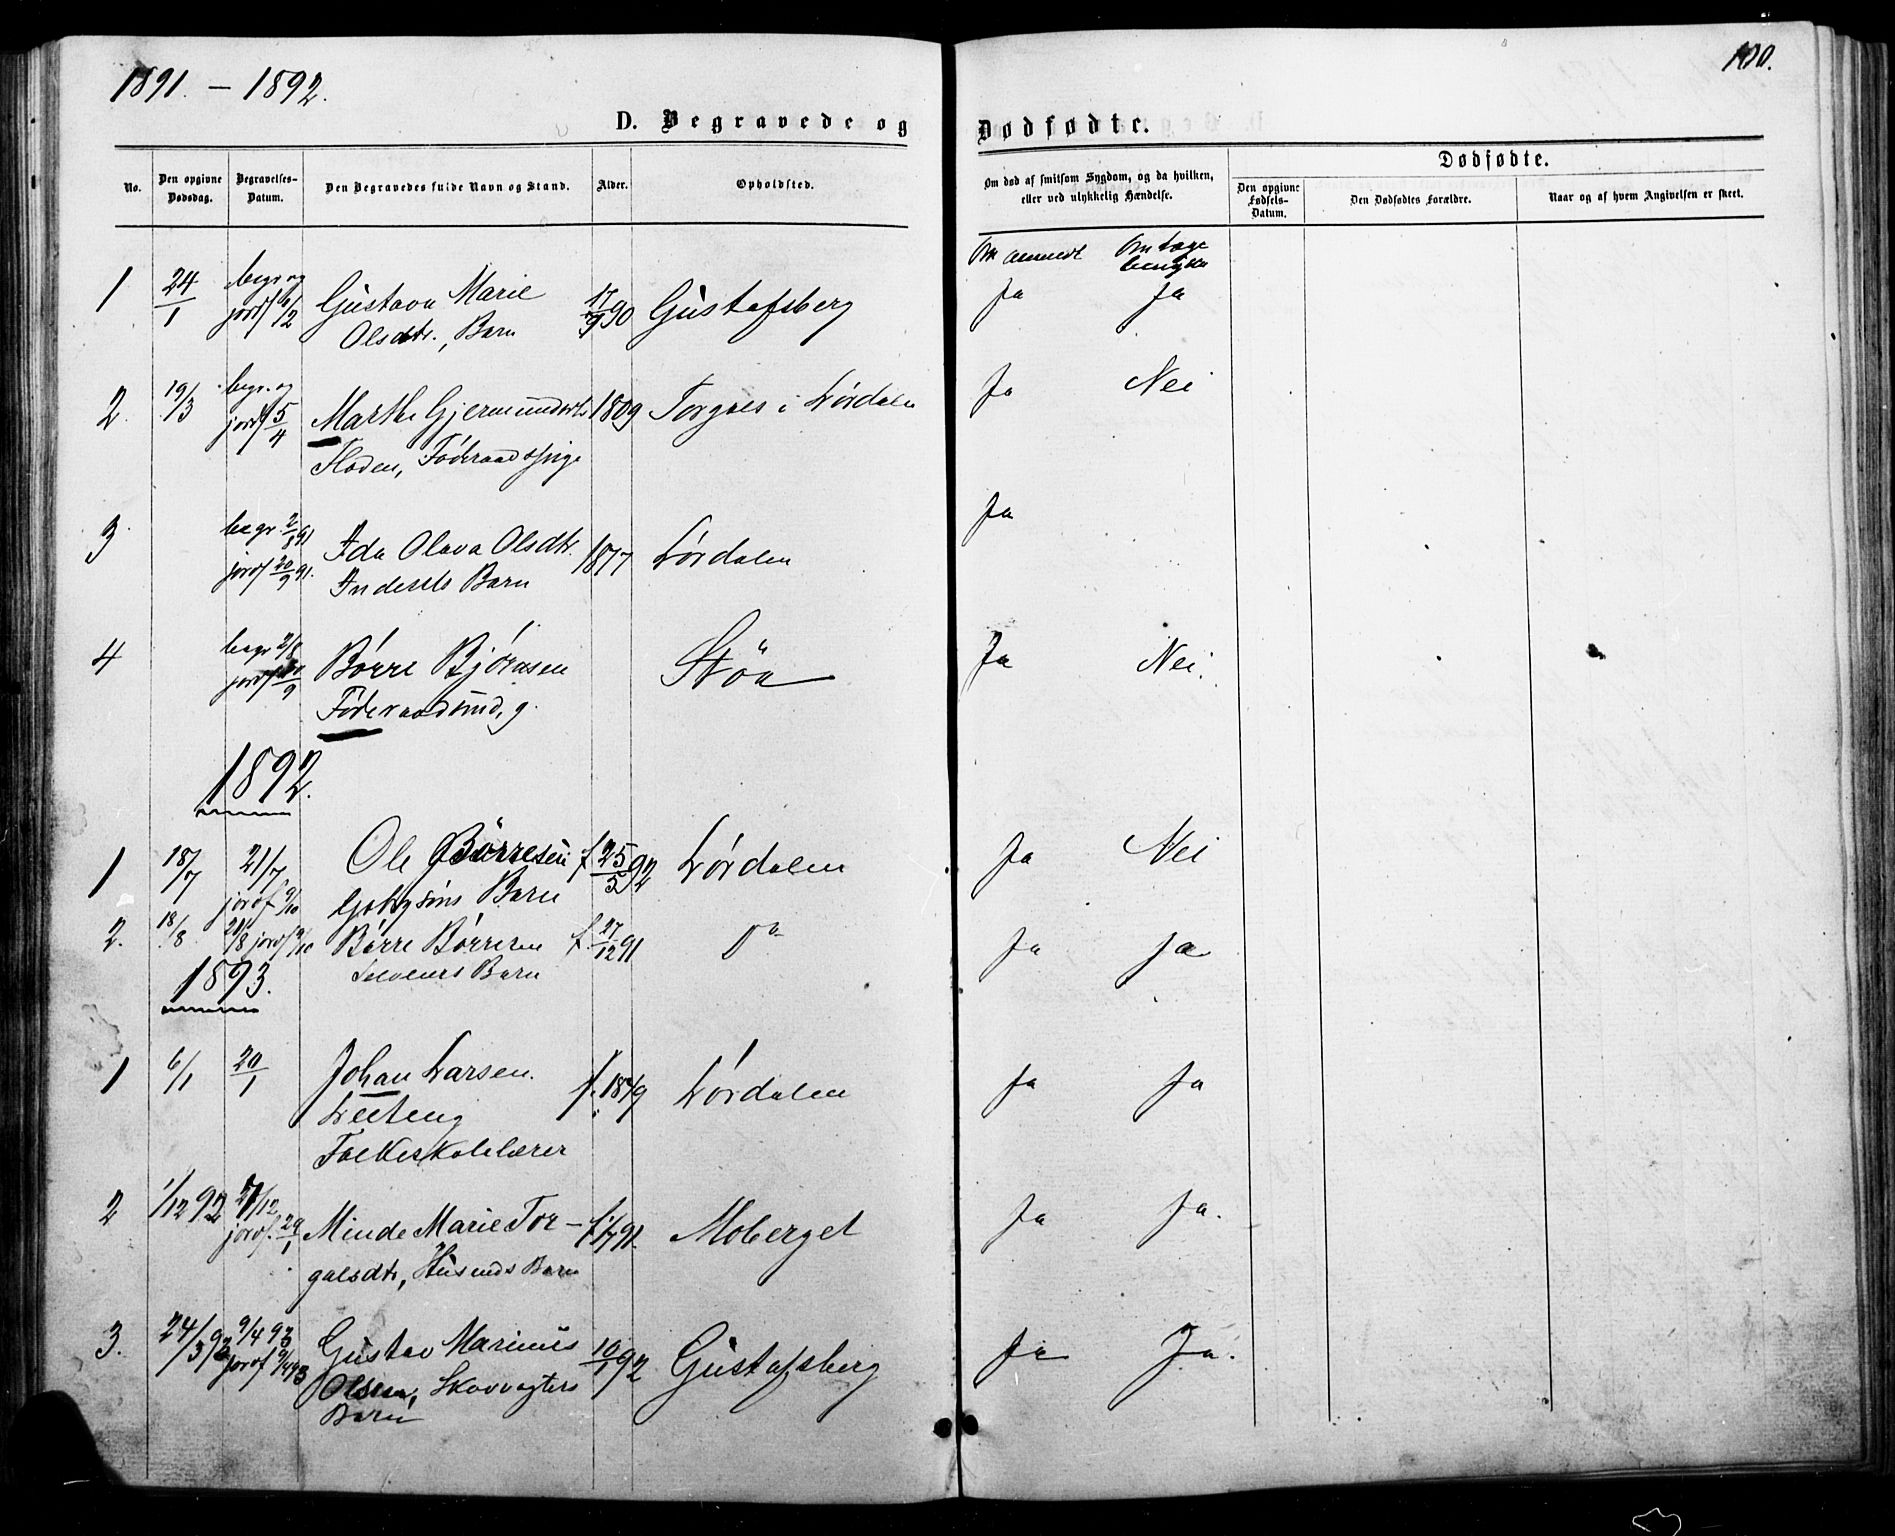 1891. – 1892.
100.
D. Begravede og
Dødfødte.
No.
Den opgivne Dødsdag.
Begravelses-Datum.
Den Begravedes fulde Navn og Stand.
Alder.
Opholdsted.
Om død af smitsom Sygdom, og da hvilken, eller ved ulykkelig Hændelse.
Dødfødte.
Den opgivne Fødsels-Datum.
Den Dødfødtes Forældre.
Naar og af hvem Angivelsen er skeet.
Om anmeldt Om læge
1 24/1 begr. og Gustava Marie 17/9 90 Gustafsberg Ja Ja
jordf. /2 Olsdtr., Barn
2. 19/3 begr. og Ja Nei
jordf 5/4 Marthe Gjermundsdtr 1809 i Lørdalen
Floden, Føderaadspige
3 begr. 2/8 91 Ida Olava Olsdtr. 1877 Lørdalen Ja
jordf 20/9 91. Barn
4 begr 2/8 Børre Bjørnsen Støa Ja Nei.
jordf /9 Føderaadsmd, g.
1892.
1 18/7 21/7 Ole Børresen f 25/5 92 Lørdalen Ja Nei
jordf 9/10 Barn
2. 18/8 21/8 jordf 9/10 Børre Børresen f. 27/12 91 Do Ja Ja
Barn
1893.
1 6/1 20/1 Johan Larsen f. 1849 Lørdalen Ja Ja
Folkeskolelærer
2 1/12 92 27/12 Minde Marie Tor- f. 1/7 91. Moberget Ja Ja.
jordf. 29/1 galsdtr, Husmds Barn
3. 24/3 93 9/4 93 Gustav Marinus 10/1 92 Gustafsberg Ja Ja.
jordf 9/4 93 Olsen, Skovvogters
Barn